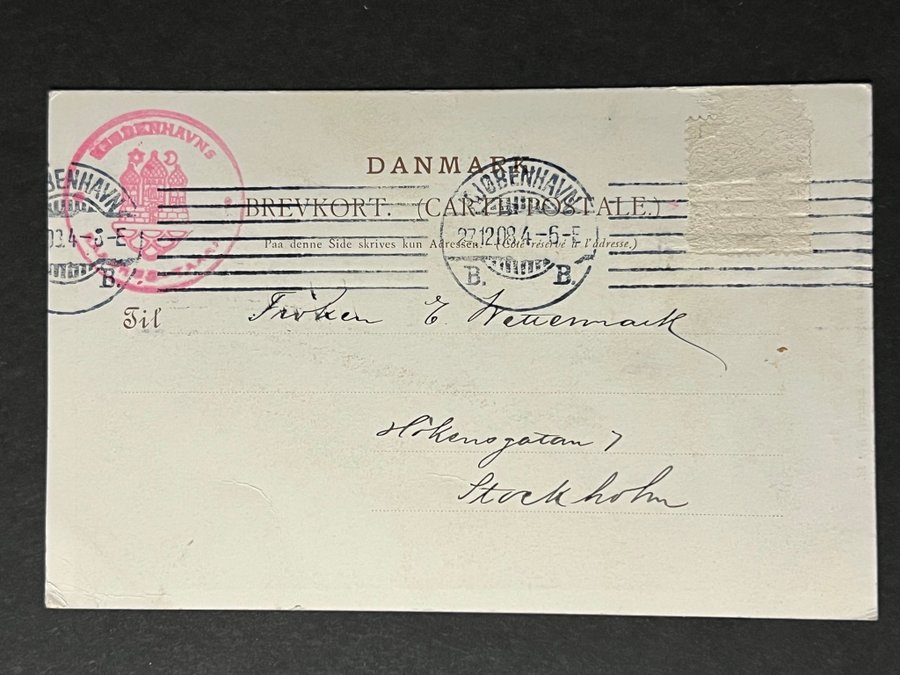 KJØBENHAVNS
DANMARK
KJØBENHAVN
KJØBENHAVN
BREVKORT. (CARTE POSTALE.)
Paa denne Side skrives kun Adressen. (Côté réservé à l'adresse.)
03.4-5-E
27.12.03.4-5-E
B.
B. B.
Til Fröken E. Wettermark
Hökensgatan 7
Stockholm